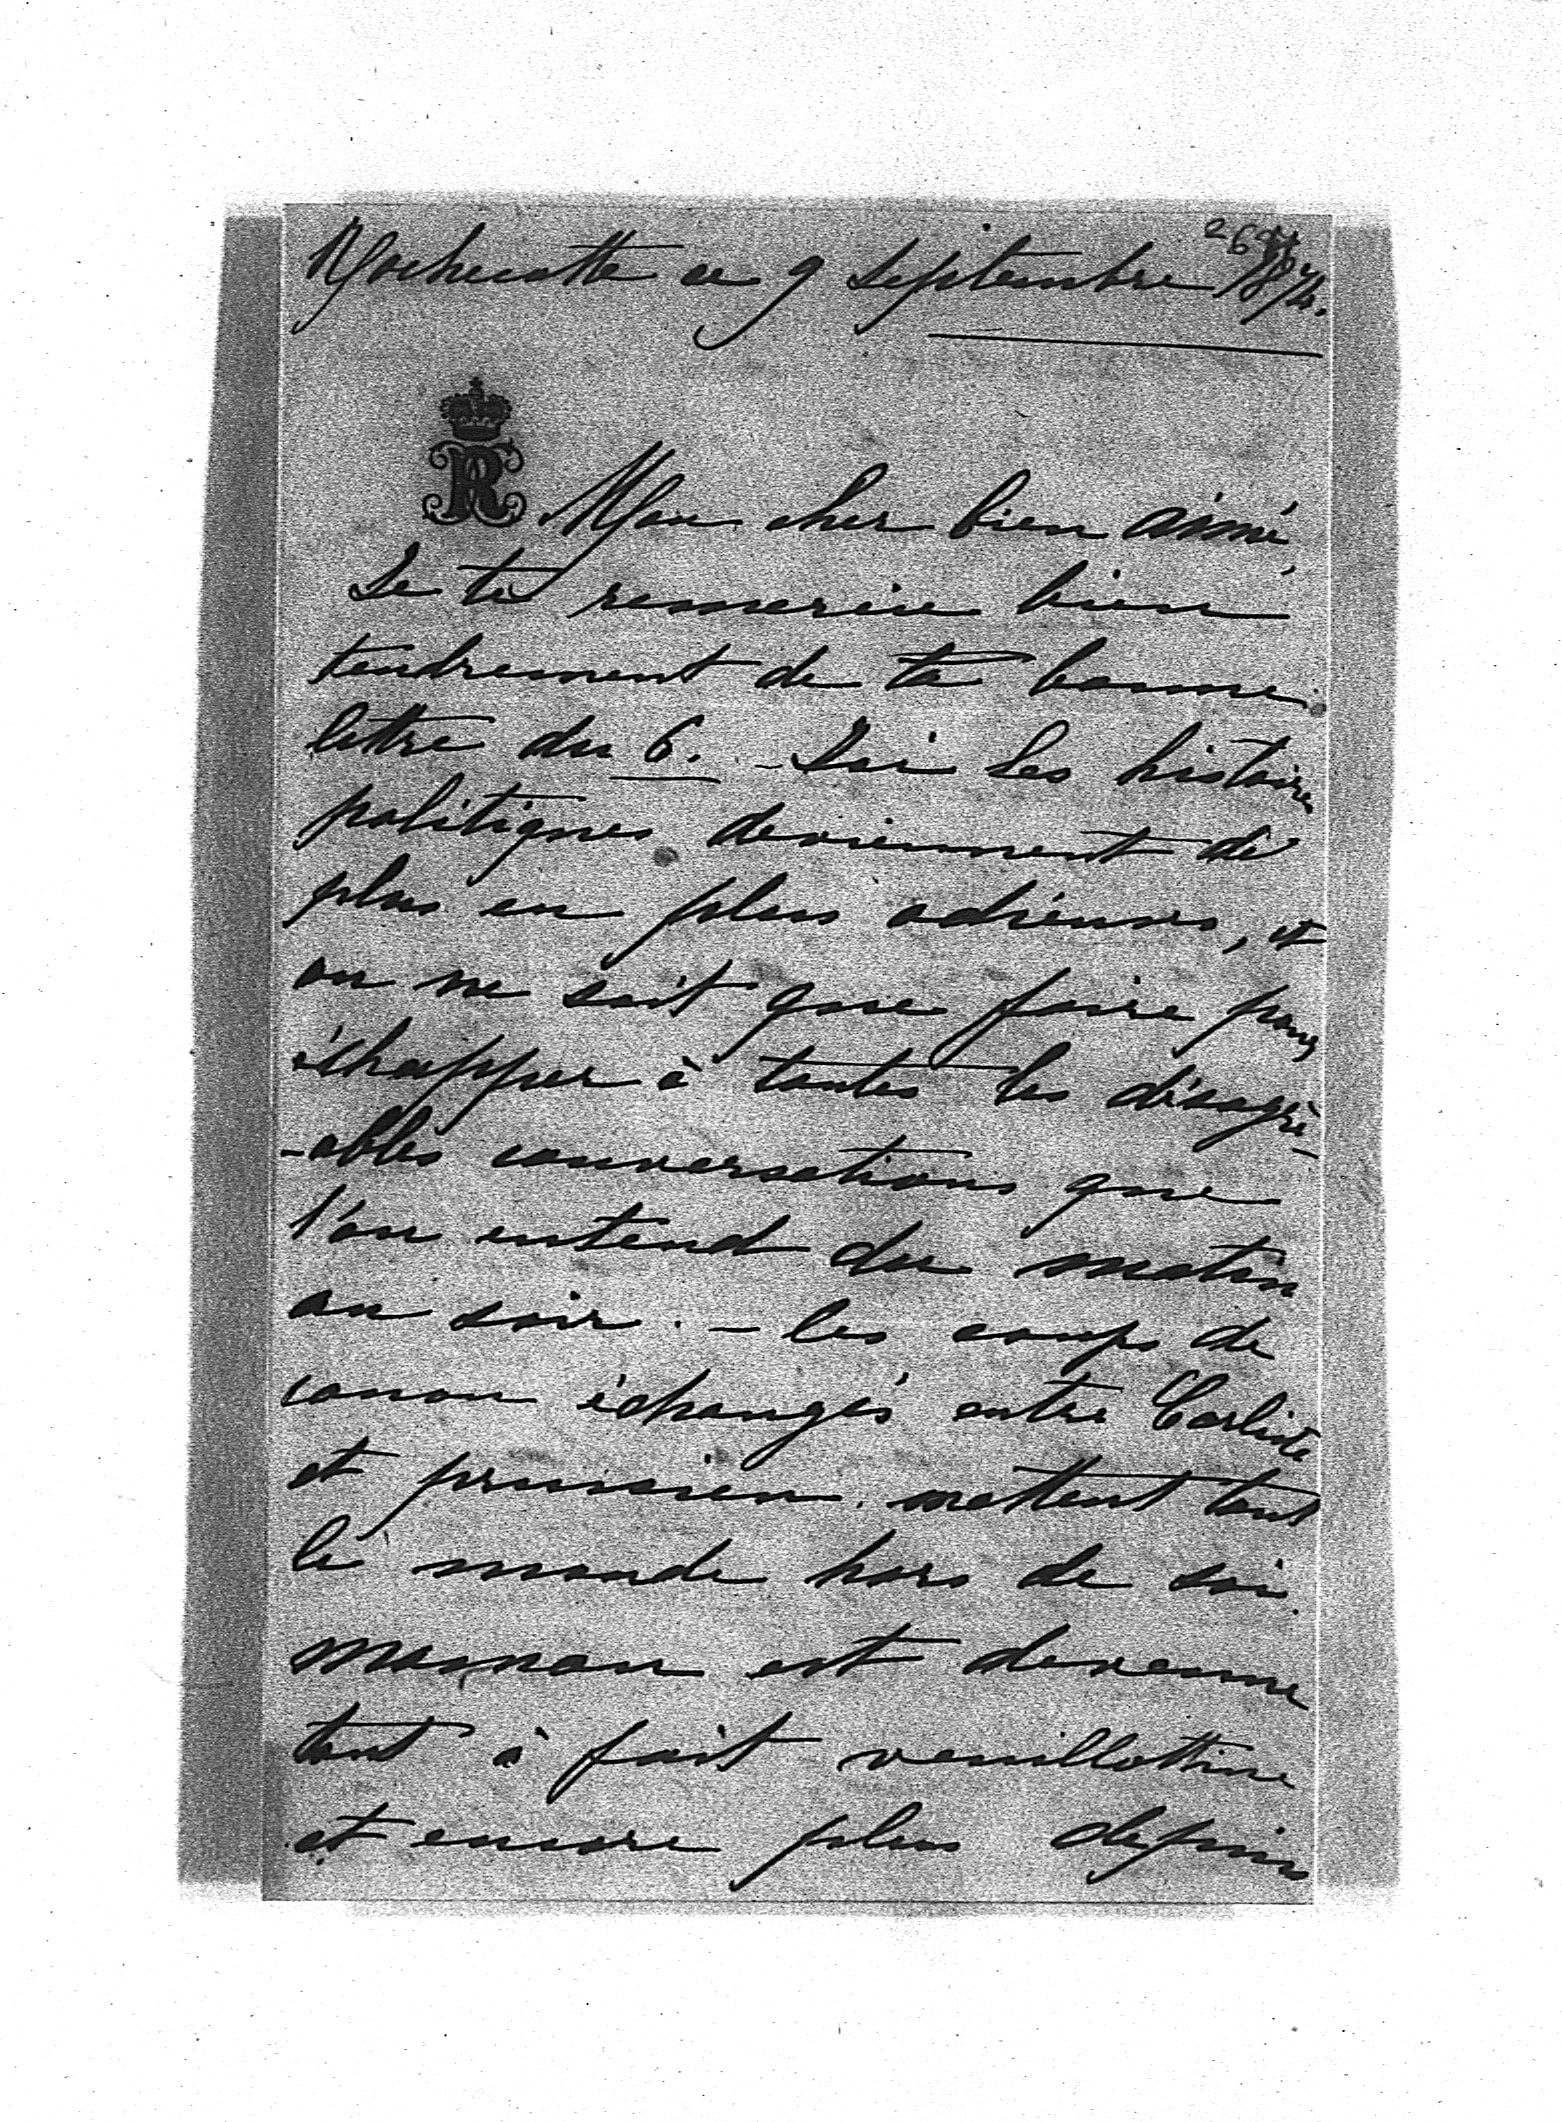 Rochecotte ce 9 septembre 1874.
R
Mon cher bien aimé,
Je te remercie bien
tendrement de ta bonne
lettre du 6. - Ici les histoires
politiques deviennent de
plus en plus odieuses, et
on ne sait que faire pour
échapper à toutes les désagré-
-ables conversations que
l'on entend du matin
au soir. - les coups de
canon échangés entre Carliste
et prussien mettent tout
le monde hors de soi.
maman est devenue
tout à fait veuillottine
et encore plus depuis